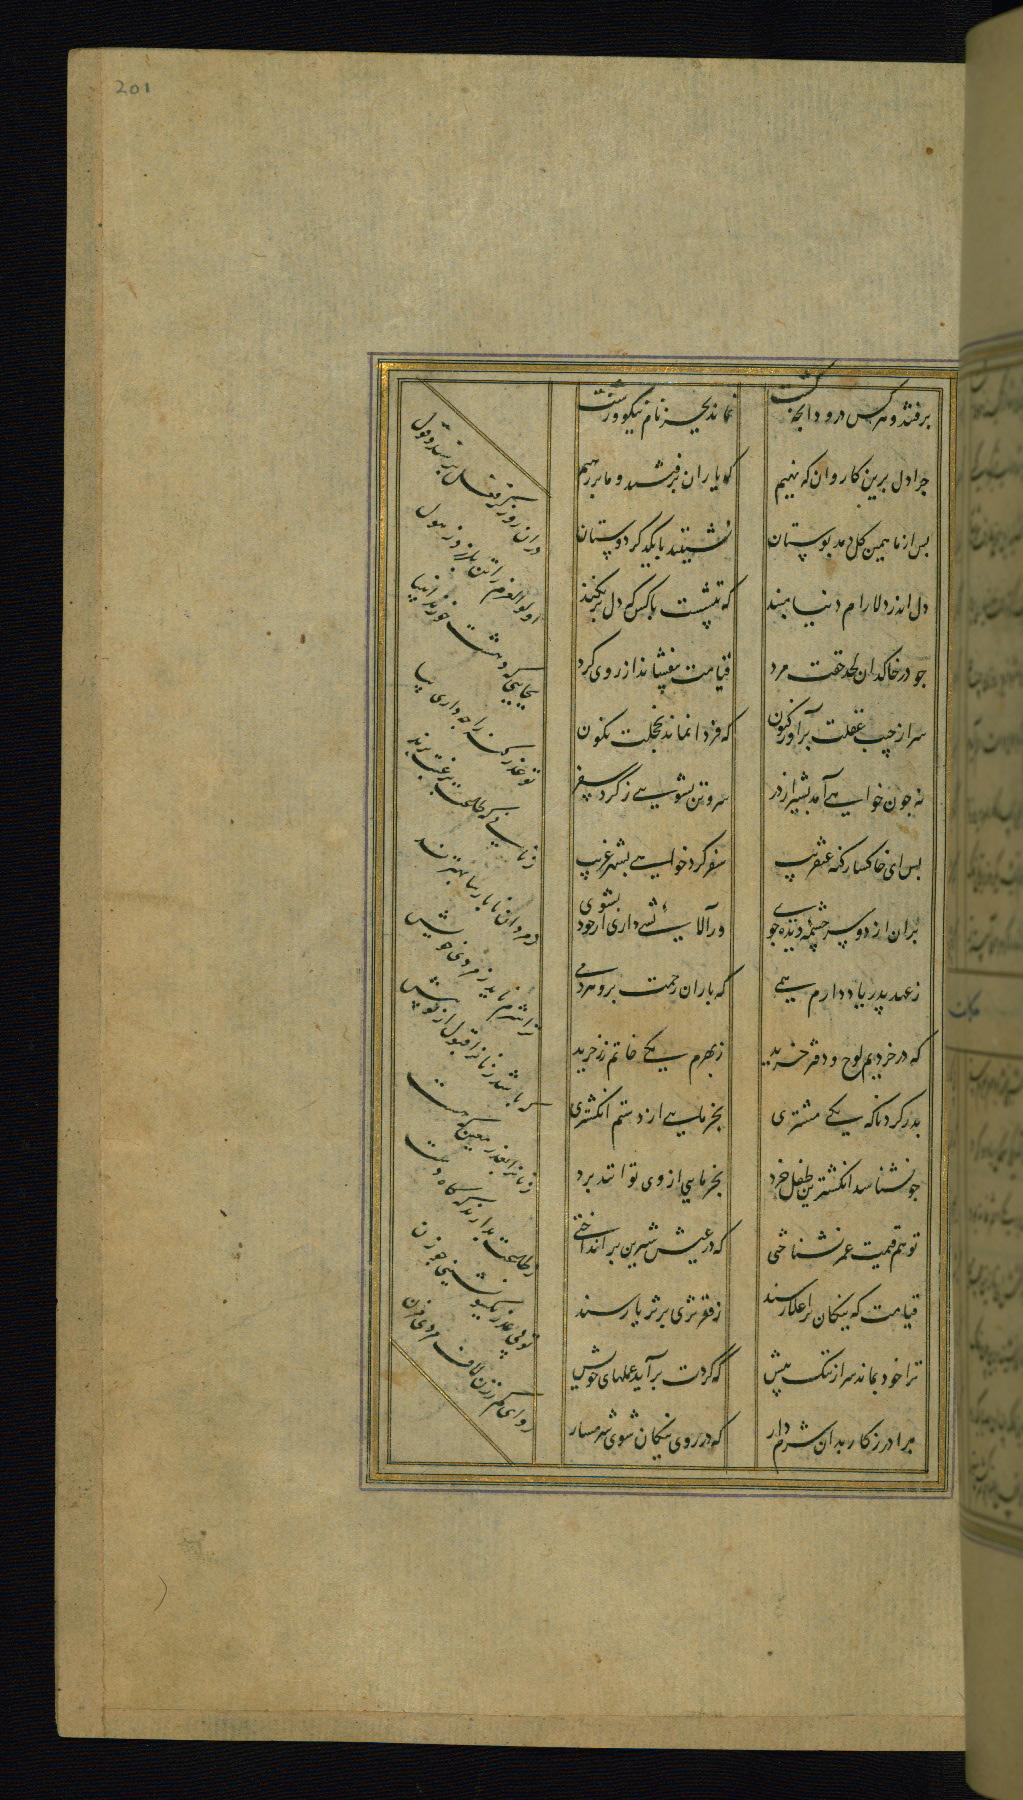 201
برفتند و هرکس درود آنچه کشت
نماند بجز نام نیکو و زشت
چرا دل برین کاروان که نهیم
که یاران برفتند و ما بر رهیم
پس از ما همین کل دمد بوستان
نشینند با یکدکر دوستان
دل اندر دلارام دنیا مبند
که ننشست با کس که دل برنکند
چو در خاکدان لحد خفت مرد
قیامت بیفشاند از روی کرد
سر از جیب غفلت برآور کنون
که فردا نماند بخجلت نکون
نه چون خواهی آمد بشیراز در
سر و تن بشویی ز کرد سفر
پس ای خاکسار کنه عنقریب
سفر کرد خواهی بشهر غریب
بران از دو سرچشمهٔ دیده جوی
ور آلایشی داری از خود بشوی
ز عهد پدر یاد دارم همی
که باران رحمت برو هر دمی
که در خردیم لوح و دفتر خرید
ز بهرم یکی خاتم زر خرید
بدر کرد ناکه یکی مشتری
بخرمایی از دستم انکشتری
چو نشناسد انکشترین طفل خرد
بخرمایی از وی توانند برد
تو هم قیمت عمر نشناختی
که در عیش شیرین برانداختی
قیامت که نیکان بر اعلا رسند
ز قعر ثری بر ثریا رسند
ترا خود بماند سر از ننک پیش
که کردت برآید عملهای خویش
برادر ز کار بدان شرم دار
که در روی نیکان شوی شرمسار
در آن روز کز فعل پرسند و قول
اولوالعزم را تن بلرزد ز هول
بجایی که دهشت خورند انبیا
تو عذر کنه را چه داری بیا
زنانی که طاعت برغبت برند
ز مردان ناپارسا بهترند
ترا شرم ناید ز مردی خویش
که باشد زنانرا قبول از تو بیش
زنانرا بعذر معین که هست
ز طاعت بدارند که کاه دست
تو بی عذر یکسو نشینی چو زن
رو ای کم ز زن لاف مردی مزن